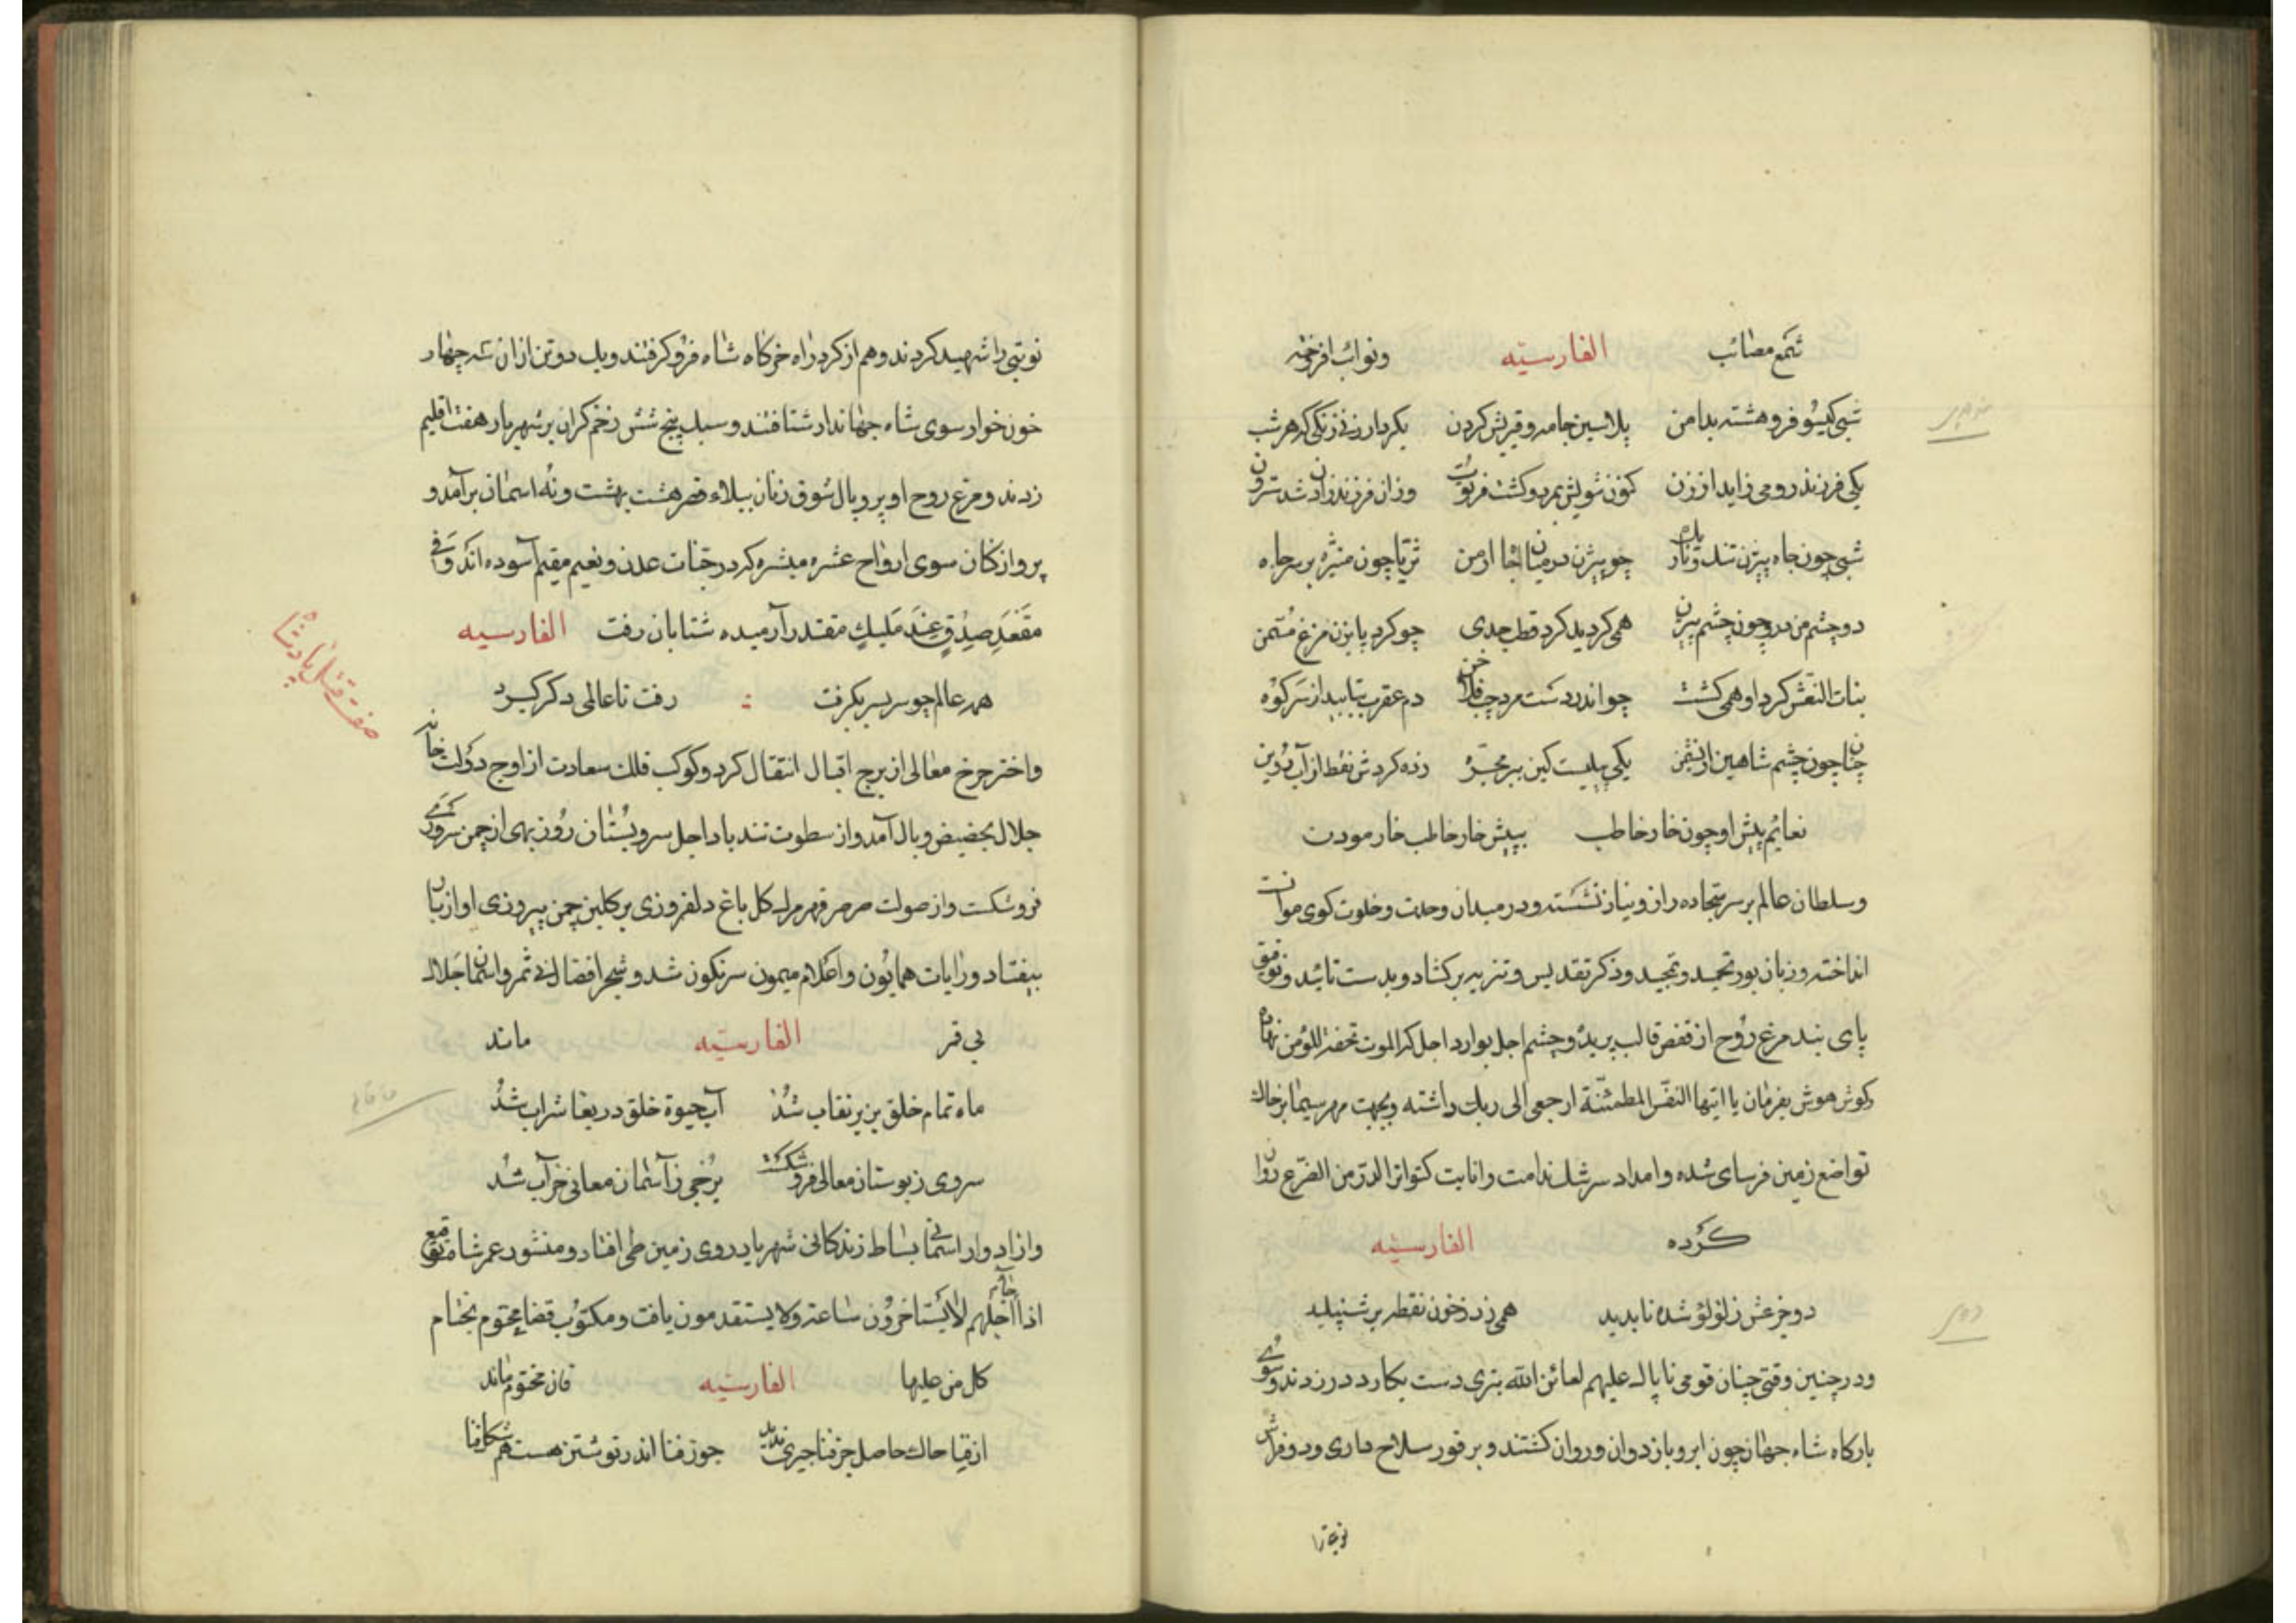 شمع مصائب الفارسیّه ونوائب افروخته
شبی کیسو فروهشته بدامن پلاسین جامه وقیرینش کردن بکردار زنی زنکی که هر شب
یکی فرزند رومی زاید از زن کنون شویش بمرد وکشت فرتوت وزان فرزند زادن شد سترون
شبی چون چاه بیژن تنك وتاریك چو بیژن در میان انجا او من ثریا چون منیژه بر سر چاه
دو چشم من درو چون چشم بیژن همی کردید کرد قطب جدی چو کرد بابزن مرغ مُثمن
بنات النعش کرد او همی کشت چو اندر دست مرد چپ فلاخن دم عقرب بتابید از سر کوه
چنان چون چشم شاهین از نشیمن یکی پیلیست کین بر مجرّه زده کردش نقط از آب روین
نعایم پیش او چون خار خاطب بپیش خار خاطب خار مودن
وسلطان عالم بر سر سجاده راز ونیاز نشسته ودر میدان وحدت وخلوت کوی موانست
انداخته وزبان بورد تحمید وتمجید وذکر تقدیس وتنزیه برکشاد وبدست تائید وتوفیق
پای بند مرغ رُوح از قفص قالب بریده وچشم اجل بوارد اجل که الموت تحفة المؤمن نهاده
وکوش هوش بفرمان یا ایتها النفس المطمئنّة ارجعی الی ربك داشته وبجهت مهر سیما بر خاك
تواضع زمین فرسای شده وامداد سرشك ندامت وانابت کتواتر الدرّ من الضرع روان
کرده الفارسیّه
دو جزعش ز لؤلؤ شده ناپدید همی زد ز خون نقطه بر شنبلید
ودر چنین وقتی چنان قومی ناپاك علیهم لعائن الله بتری دست بکارد درزدند وسُوی
بارکاه شاه جهان چون ابر وباد دوان وروان کشتند وبر فور سلاح داری ودو فراش
نوبتی را
نوبتی را شهید کردند وهم از کرد راه خرکاه شاه فرو کرفتند ویك دو تن ازان سه چهار
خون خوار سوی شاه جهاندار شتافتند وسبك پنج شش زخم کران بر شهریار هفت اقلیم
زدند ومرغ روح او پر وبال شوق زنان ببالاء قصر هشت بهشت ونه اسمان برآمد و
پرواز کنان سوی ارواح عشره مبشره که در جنّات عدن ونعیم مقیم آسوده اند که وَفی
مَقعَدِ صِدْقٍ عِندَ مَلیكٍ مقتدر آرمیده شتابان رفت الفارسیه
همه عالم چو سر بسر بکرفت رفت تا عالمی دکر کیرد
صفت قتل پادشاه
واختر چرخ معالی از برج اقبال انتقال کرد وکوکب فلك سعادت از اوج دوُلت خاند
جلال بحضیض وبال آمد واز سطوت تند باد اجل سرو بُستان رُوز بهی از چمن سروری
فروشکست واز صولت صرصر قهر مرك کل باغ دلفروزی بر کلبن چمن پیروزی او از بار
بیفتاد ورایات همایُون واعلام میمون سرنکون شد وشجر افضال بی ثمر واسمان جَلال
بی قمر الفارسیّه ماند
خاقانی
ماه تمام خلق بزیر نقاب شُد آب حیوة خلق دریغا شراب شُد
سروی ز بوستان معالی فروشکست بُرجی ز آسمان معانی خراب شُد
واز ادوار اسمانی بساط زندکانی شهریار روی زمین طی افتاد ومنشور عمر شاه توقیع
اذا جاء اجلهم لا یَستاخروُن ساعة ولا یستقدمون یافت ومکتوُب قضا مختوم بختام
کل من علیها الفارسیّه فان مختوم ماند
از قیا خاك حاصل جز فنا چیزی ندید جوز فنا اندر نوشتن هست هم شکل فنا